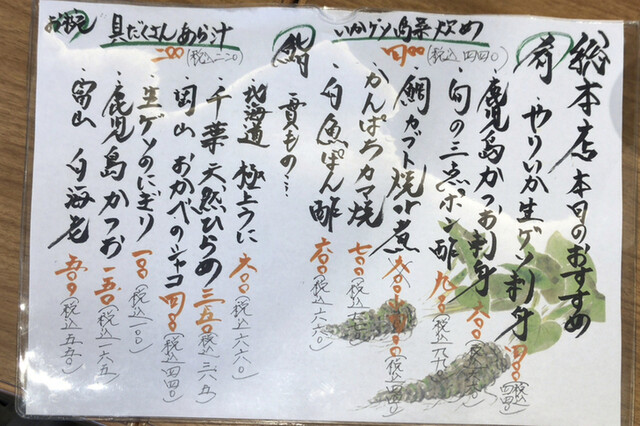 総本店 本日のおすすめ
肴
・やりいか生ゲソ刺身 四〇〇(税込四四〇)
・鹿児島かつお刺身 八〇〇
・旬の三点ポン酢 九〇〇(税込九九〇)
・鯛カブト焼
煮
・かんぱちカマ焼 六〇〇
・白魚ぽん酢 六〇〇(税込六六〇)
いかゲソ島菜炒め
四〇〇(税込四四〇)
鮨
一貫もの…
・北海道 極上うに 六〇〇(税込六六〇)
・千葉 天然ひらめ 三五〇(税込三八五)
・岡山 おかべのシャコ 四〇〇(税込四四〇)
・生ゲソのにぎり 一〇〇(税込一一〇)
・鹿児島かつお 一五〇(税込一六五)
・富山 白海老 五〇〇(税込五五〇)
お椀
具だくさんあら汁
二〇〇(税込二二〇)